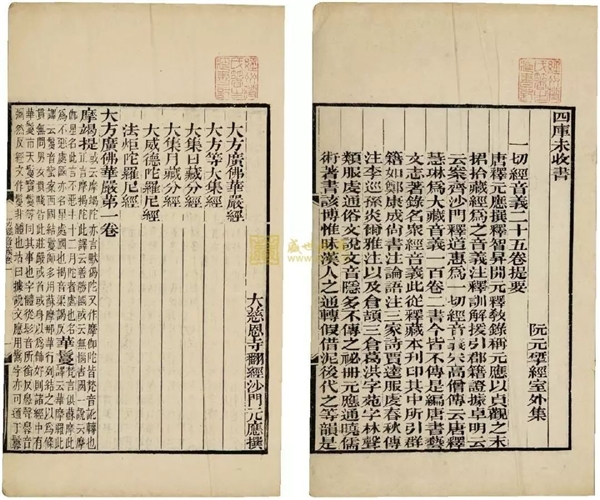 四庫未收書
一切經音義二十五卷提要
阮元揅經室外集
唐釋元應撰釋智昇開元釋教錄稱元應以貞觀之末
捃拾藏經為之音義注釋訓解援引郡籍證據卓明云
云案齊沙門釋道惠為一切經音義宋高僧傳云唐釋
慧琳為大藏音義一百卷二書今皆不傳是編唐書藝
文志著錄名眾經音義此從釋藏本刊印其中所引群
籍如鄭康成尚書注論語注三家詩賈逵服虔春秋傳
注李巡孫炎爾雅注以及倉頡三倉葛洪字苑字林聲
類服虔通俗文說文音隱多不傳之祕冊元應通曉儒
術著書該博惟昧漢人之通轉假借泥後代之等韻是
大慈恩寺翻經沙門元應撰
大方廣佛華嚴經
大方等大集經
大集日藏分經
大集月藏分經
大威德陀羅尼經
法炬陀羅尼經
大方廣佛華嚴第一卷
摩竭提或云摩竭陀亦言默竭陀又作摩伽陀皆梵音訛轉也
正言摩揭陀此譯云善勝國或云無惱害國一說云摩